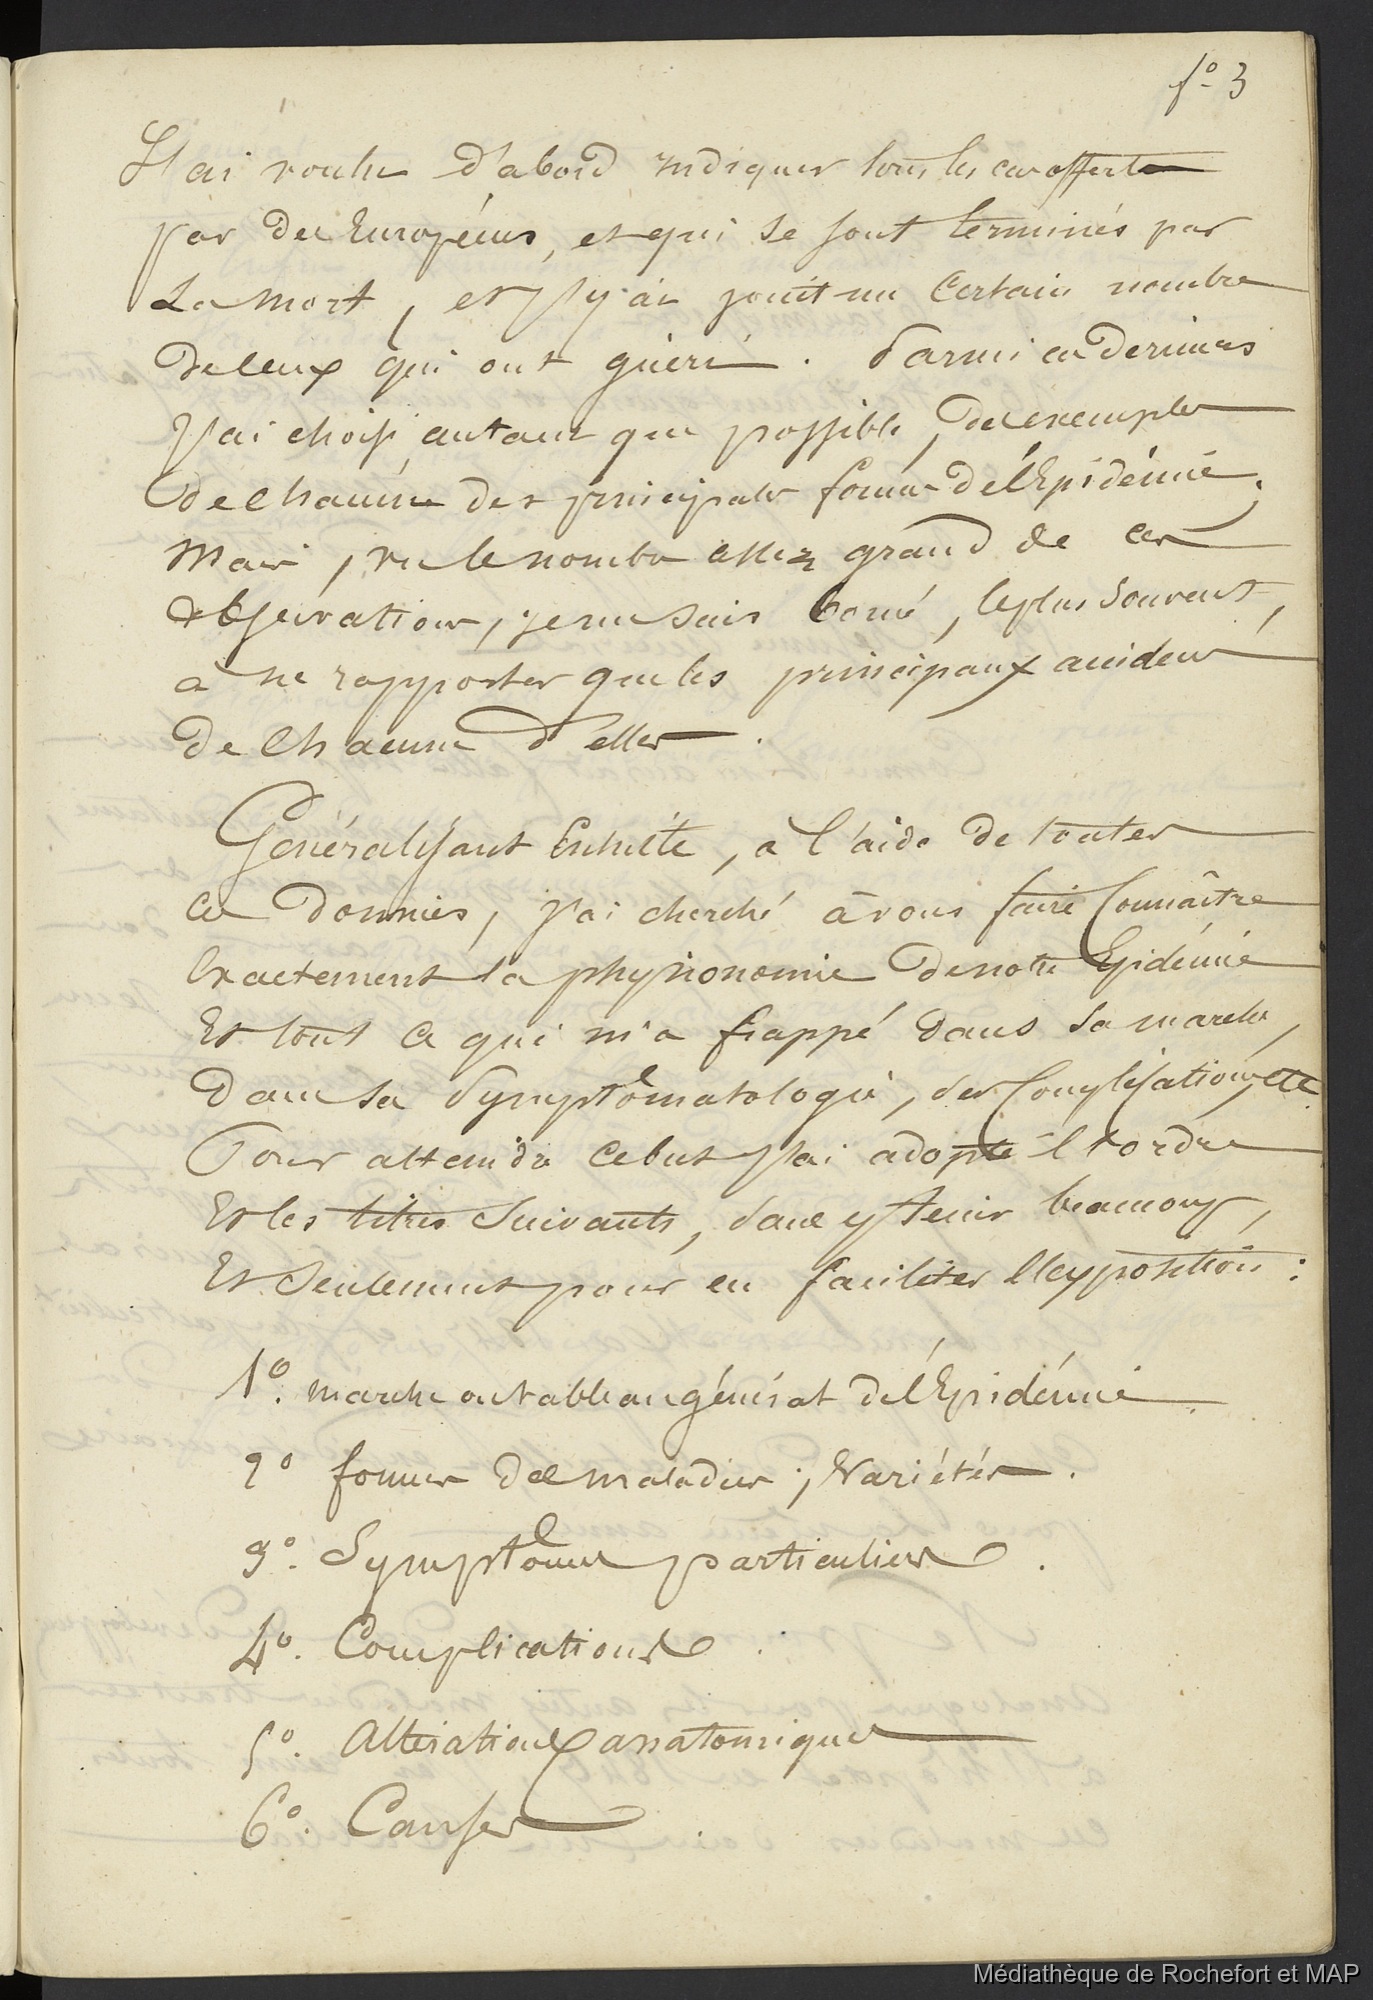 fo 3
J'ai voulu d'abord indiquer tous les cas offerts
par des Européens, et qui se sont terminés par
la mort, et j'y ai joint un certain nombre
de ceux qui ont guéri. Parmi ces derniers
j'ai choisi, autant que possible, des exemples
de chacune des principales formes de l'Epidémie;
mais, vu le nombre assez grand de ces
observations, je me suis borné, le plus souvent,
à ne rapporter que les principaux accidens
de chacune d'elles.
Généralisant Ensuite, à l'aide de toutes
ces données, j'ai cherché à vous faire connaître
Exactement la physionomie de notre Epidémie
Et tout ce qui m'a frappé dans sa marche,
dans sa Symptômatologie, ses Complications, etc
Pour atteindre ce but j'ai adopté l'ordre
Et les titres suivants, sans y tenir beaucoup,
Et seulement pour en faciliter l'exposition :
1o. marche ou tableau général de l'Epidémie.
2o formes des maladies ; Variétés.
3o. Symptômes particuliers.
4o. Complications.
5o. Altérations anatomiques
6o. Causes.
Médiathèque de Rochefort et MAP